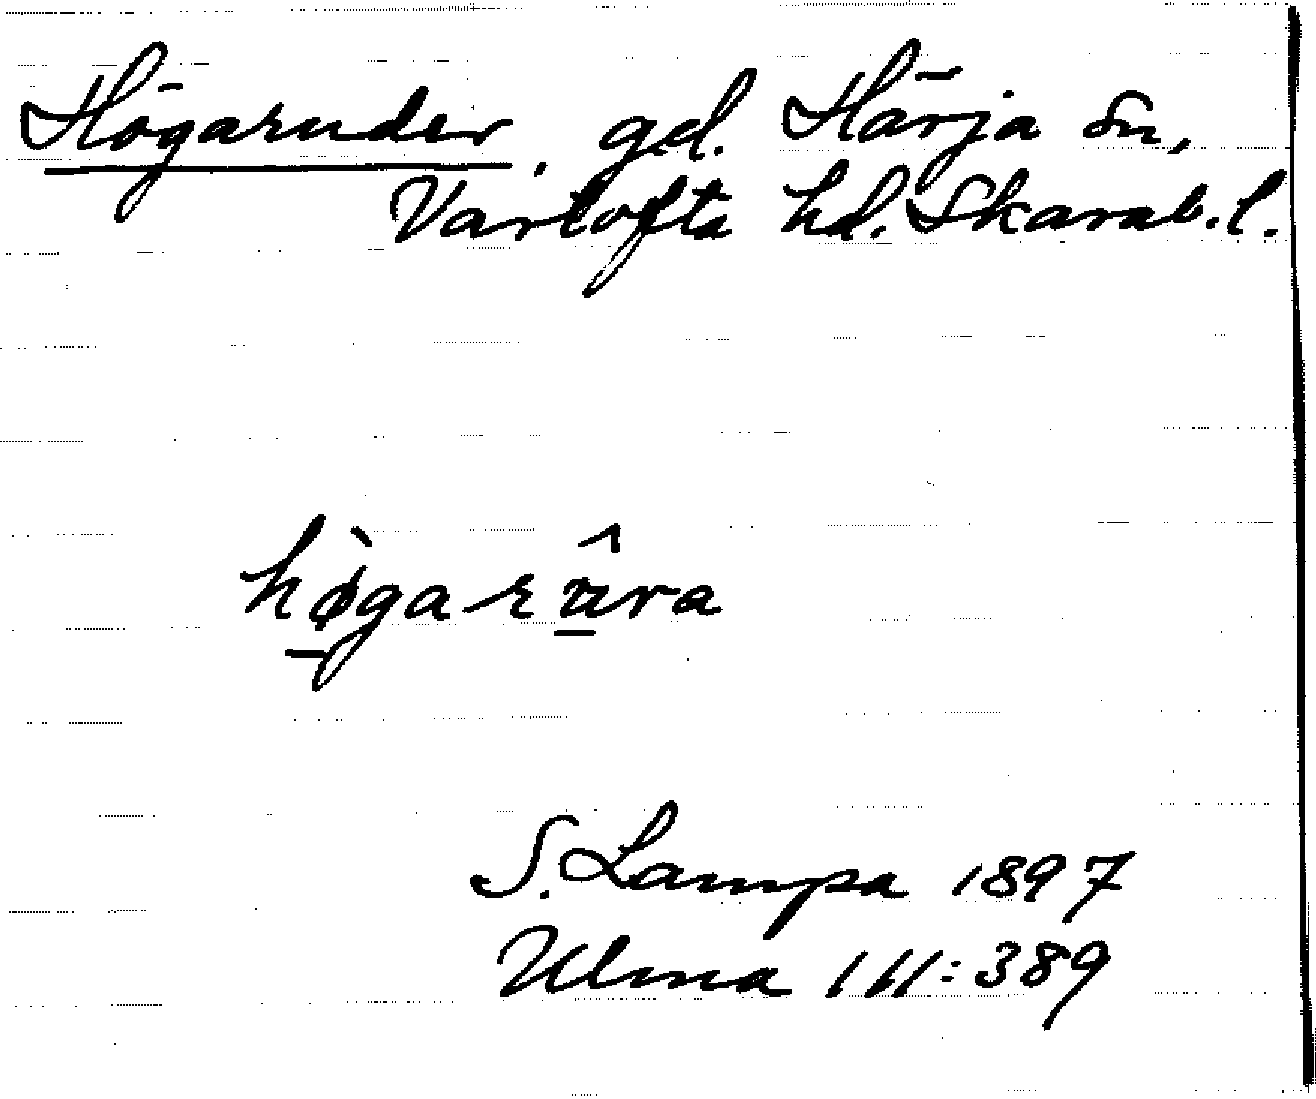 Högaruder, gd. Härja sn,
Vartofta hd. Skarab. l.
hø̀garûra
S. Lampa 1897
Ulma 111:389